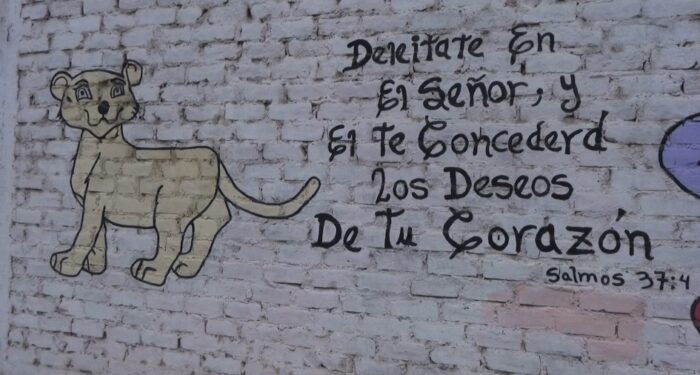 Deleitate En
El Señor, y
El te Concederá
Los Deseos
De Tu Corazón
Salmos 37:4